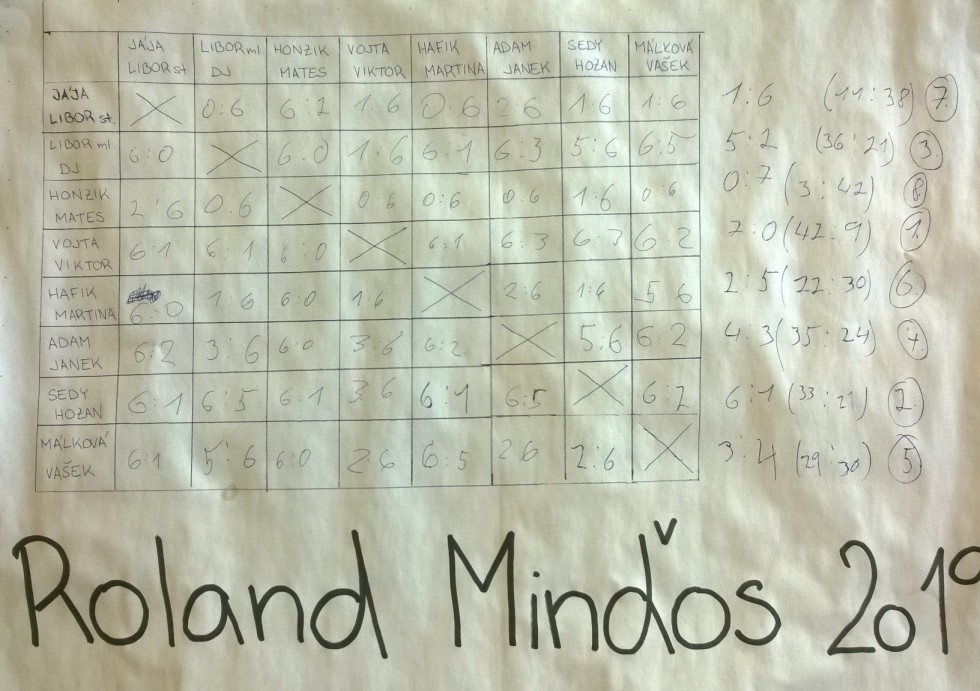 JÁJA LIBOR st LIBOR ml DJ HONZIK MATES VOJTA VIKTOR HAFIK MARTINA ADAM JANEK SEDY HOZAN MÁLKOVÁ VAŠEK
JÁJA LIBOR st. 0:6 6:2 1:6 0:6 2:6 1:6 1:6 1:6 (11:38) 7.
LIBOR ml. DJ 6:0 6:0 1:6 6:1 6:3 5:6 6:5 5:2 (36:21) 3.
HONZIK MATES 2:6 0:6 0:6 0:6 0:6 1:6 0:6 0:7 (3:42) 8
VOJTA VIKTOR 6:1 6:1 6:0 6:1 6:3 6:3 6:2 7:0 (42:9) 1.
HAFIK MARTINA 6:0 1:6 6:0 1:6 2:6 1:6 5 6 2:5 (22:30) 6.
ADAM JANEK 6:2 3:6 6:0 3:6 6:2 5:6 6:2 4:3 (35:24) 4.
SEDY HOZAN 6:1 6:5 6:1 3 6 6:1 6:5 6:2 6:1 (33:21) 2.
MÁLKOVÁ VAŠEK 6:1 5:6 6:0 2:6 6:5 2 6 2:6 3:4 (29:30) 5
Roland Minďos